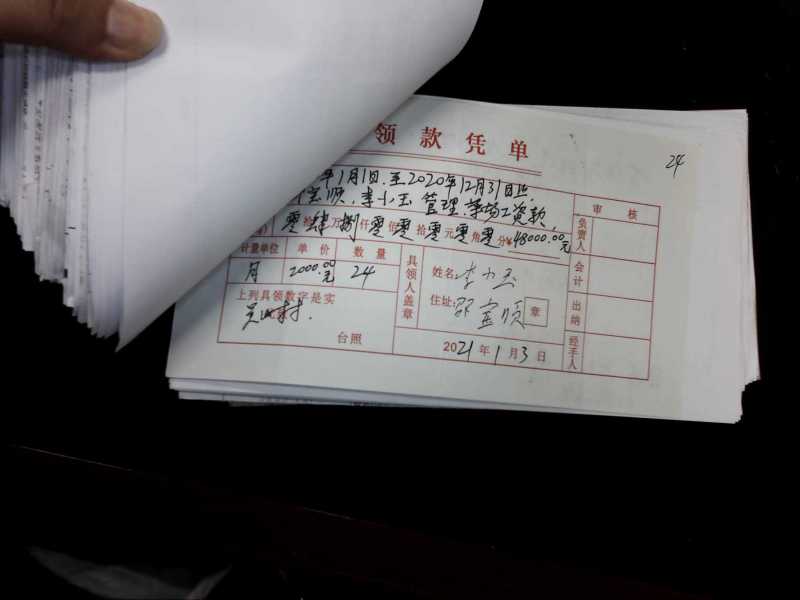 领款凭单
24
年1月1日至2020年12月31日止
宝顺,李小玉管理菜场工资款,
零拾肆万捌仟零佰零拾零元零角零分¥48000.00元
计量单位 单价 数量
月 2000.00元 24
上列具领数字是实
台照
具领人盖章
姓名: 李小玉
住址: 邵宝顺 章
2021年1月3日
审核
负责人
会计
出纳
经手人